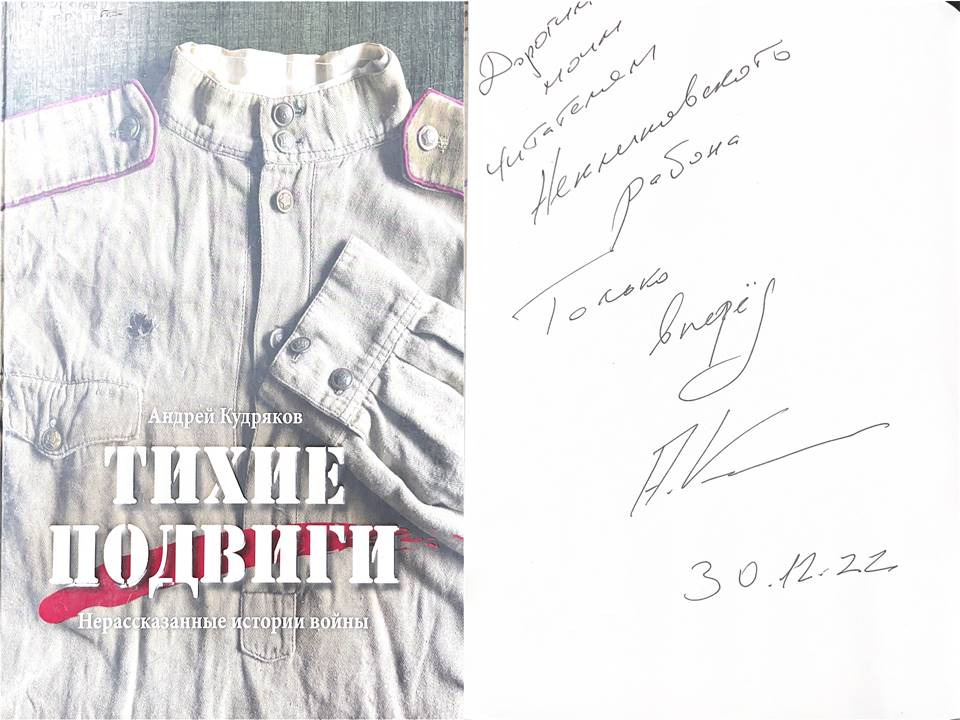 Андрей Кудряков
ТИХИЕ
ПОДВИГИ
Нерассказанные истории войны
Дорогим
моим
читателям
Неклиновского
района
Только
вперёд
А.К
30.12.22